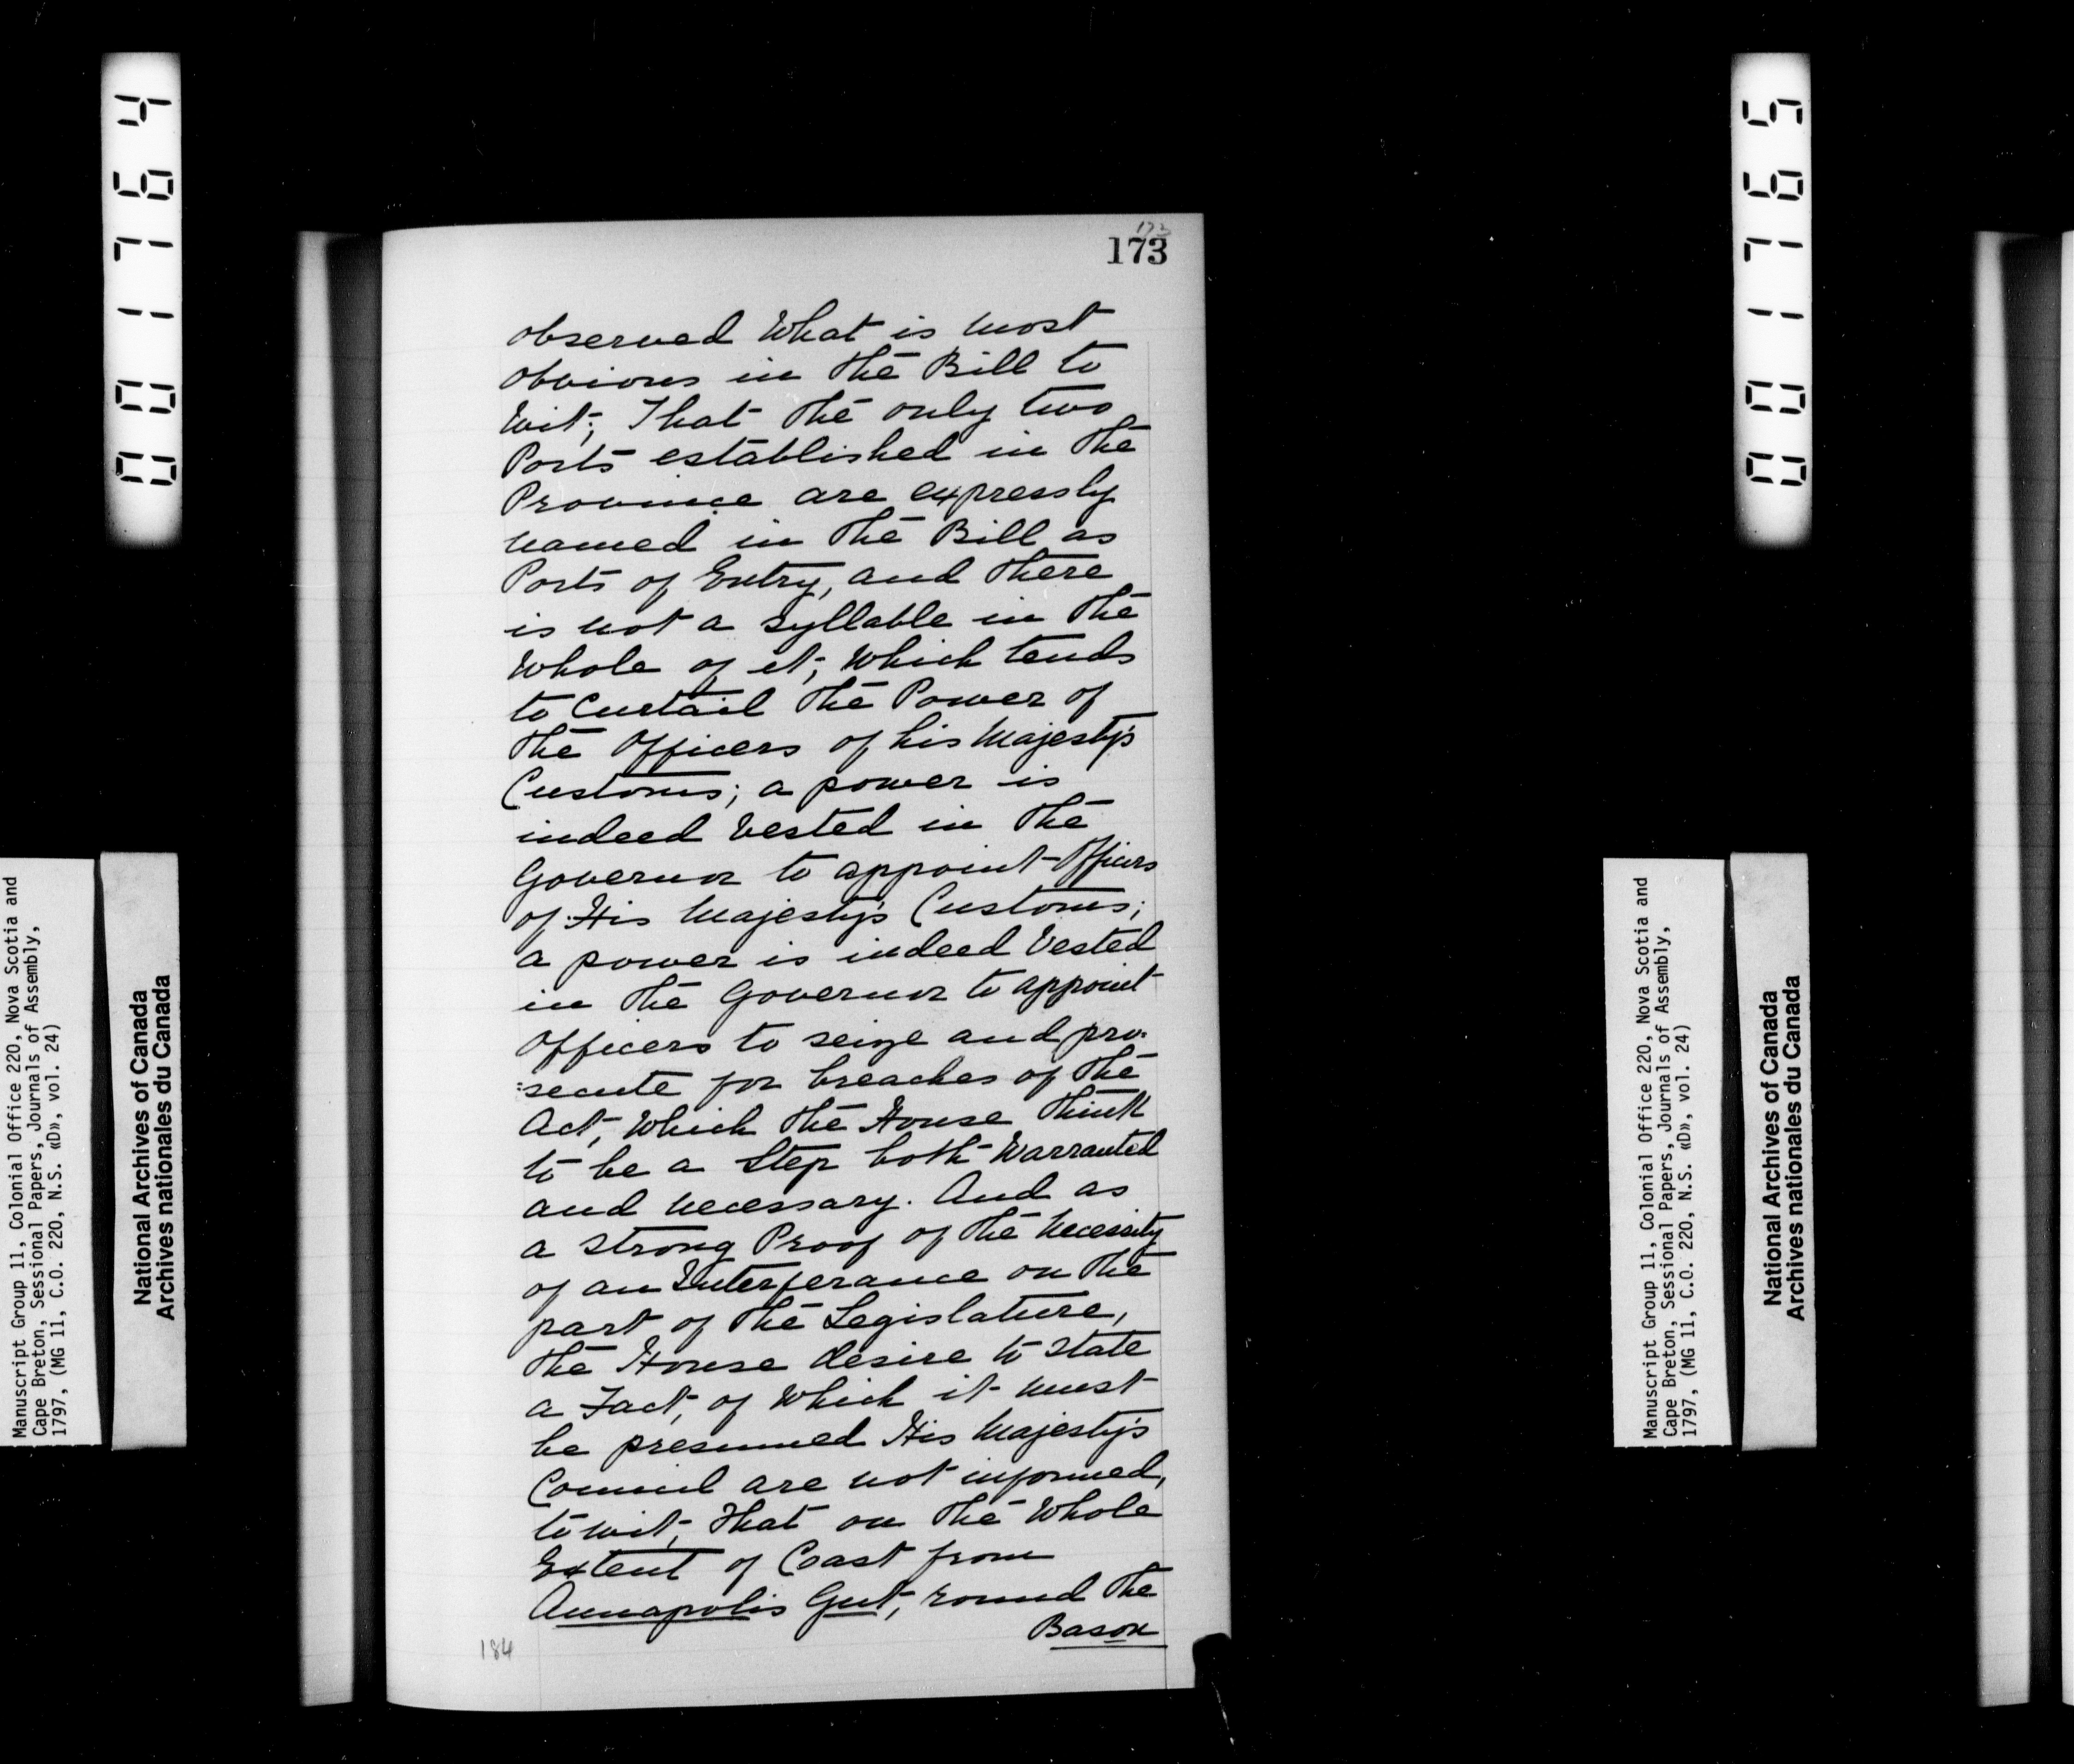 001764
001765
173
173
observed What is most
obvious in the Bill to
Wit; That the only two
Ports established in the
Province are expressly
named in the Bill as
Ports of Entry, and there
is not a syllable in the
Whole of it; Which tends
to Curtail the Power of
the Officers of his Majesty's
Customs; a power is
indeed Vested in the
Governor to appoint Officers
of His Majesty's Customs;
a power is indeed Vested
in the Governor to appoint
Officers to seize and pro-
:secute for breaches of the
Act, Which the House think
to be a Step both Warranted
and necessary. And as
a strong Proof of the Necessity
of an Interferance on the
part of the Legislature,
the House desire to state
a Fact, of Which it must
be presumed His Majesty's
Council are not informed,
to wit, that on the Whole
Extent of Coast from
Annapolis Gut, round the
Bason
184
Manuscript Group 11, Colonial Office 220, Nova Scotia and
Cape Breton, Sessional Papers, Journals of Assembly,
1797, (MG 11, C.O. 220, N.S. «D», vol. 24)
National Archives of Canada
Archives nationales du Canada
Manuscript Group 11, Colonial Office 220, Nova Scotia and
Cape Breton, Sessional Papers, Journals of Assembly,
1797, (MG 11, C.O. 220, N.S. «D», vol. 24)
National Archives of Canada
Archives nationales du Canada